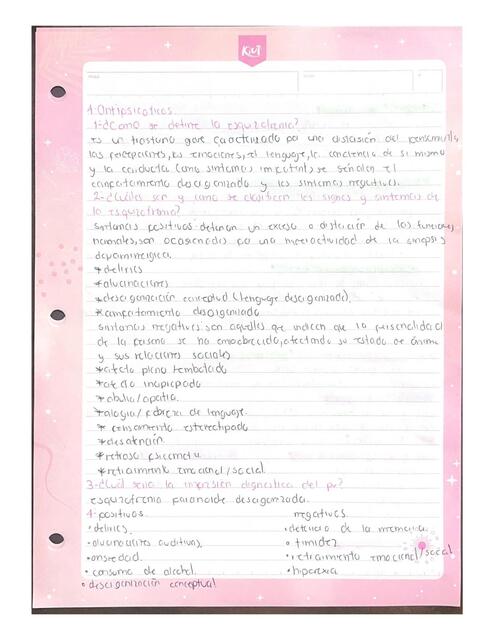 Kiut
4. Antipsicoticos.
1-¿Como se define la esquizofrenia?
es un trastorno grave caracterizado por una distorsión del pensamiento,
las percepciones, las emociones, el lenguaje, la conciencia de si mismo
y la conducta. Como sintomas importantes, se señalan el
comportamiento desorganizado y los sintomas negativos.
2-¿Cuáles son y como se clasifican los signos y sintomas de
la esquizofrenia?
sintomas positivos: denotan un exceso o distorsión de las funciones
normales, son ocasionados por una hiperactividad de la sinapsis
dopaminergica.
*delirios
*alucinaciones
*desorganización conceptual (lenguaje desorganizado)
*comportamiento desorganizado
sintomas negativos: son aquellos que indican que la personalidad
de la persona se ha empobrecido, afectando su estado de ánimo
y sus relaciones sociales
*afecto plano/embotado
*afecto inapropiado
*abulia/apatia.
*alogia/pobreza de lenguaje.
* pensamiento estereotipado
*desatención.
*retraso psicomotor
*retraimiento emocional/social
3-¿Cuál seria la impresión diagnostica del px?
esquizofrenia paranoide desorganizada.
4-positivos. negativos.
•delirios. •deterioro de la memoria.
•alucinaciones auditivas. • timidez
•ansiedad. •retraimiento emocional/social
•consumo de alcohol. •hiporexia
•desorganización conceptual